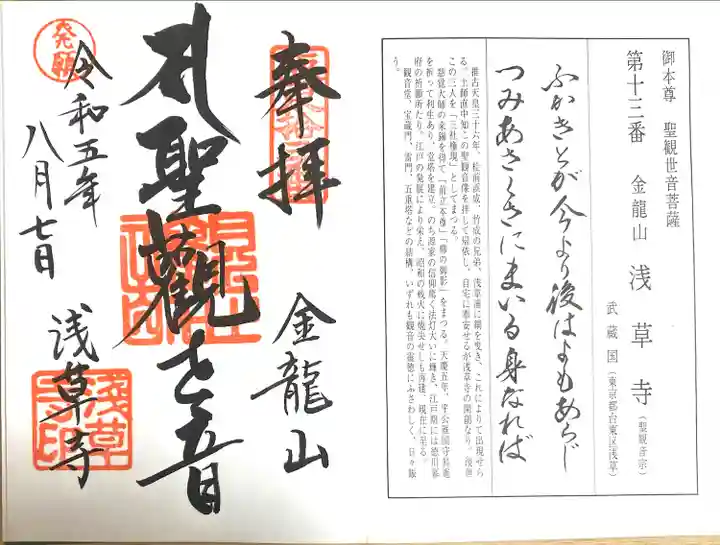 御本尊　聖観世音菩薩
第十三番　金龍山　浅草寺（聖観音宗）
武蔵国（東京都台東区浅草）
ふかきとが今より後はよもあらじ
つみあさくさにまいる身なれば
推古天皇三十六年、桧前浜成、竹成の兄弟、浅草浦に網を曳き、これによりて出現せら
る。土師直中知この聖観音像を拝して帰依し、自宅に奉安せるが浅草寺の開創なり。後世
この三人を「三社権現」としてまつる。
慈覚大師の来錫を得て「前立本尊」「柳の御影」をまつる。天慶五年、平公雅国守昇進
を祈って利生あり、堂塔を建立。のち源家の信仰篤く法灯大いに輝き、江戸期には徳川幕
府の祈願所たり。江戸の発展により栄え、昭和の戦火に焼失せしも再建、現在に至る。
観音堂、宝蔵門、雷門、五重塔などの結構、いずれも観音の霊徳にふさわしく、日々賑
う。
奉拝
金龍山
聖觀世音
浅草寺
発願
令和五年
八月七日